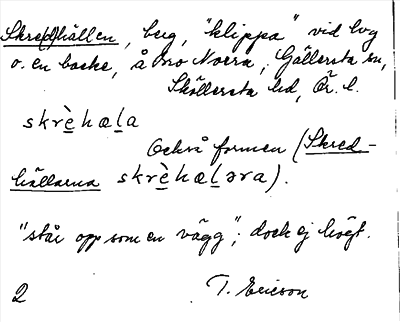 Skre(d)hällen, berg, "klippa" vid lvg
o. en backe, å Bro Norra, Gällersta sn,
Sköllersta hd, Ör. l.
skrèhæla
Också formen (Skred-
hällarna skrèhælǝra).
"står opp som en vägg"; dock ej högt.
2 T. Ericson